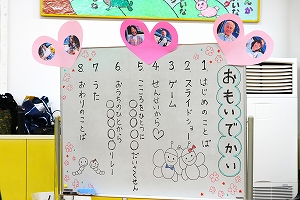 おもいでかい
1 はじめのことば
2 スライドショー
3 ゲーム
4 せんせいから♡
5 こころをひとつに
○○○○○だいさくせん
6 おうちのひとから
○○○○○リレー
7 うた
8 おわりのことば